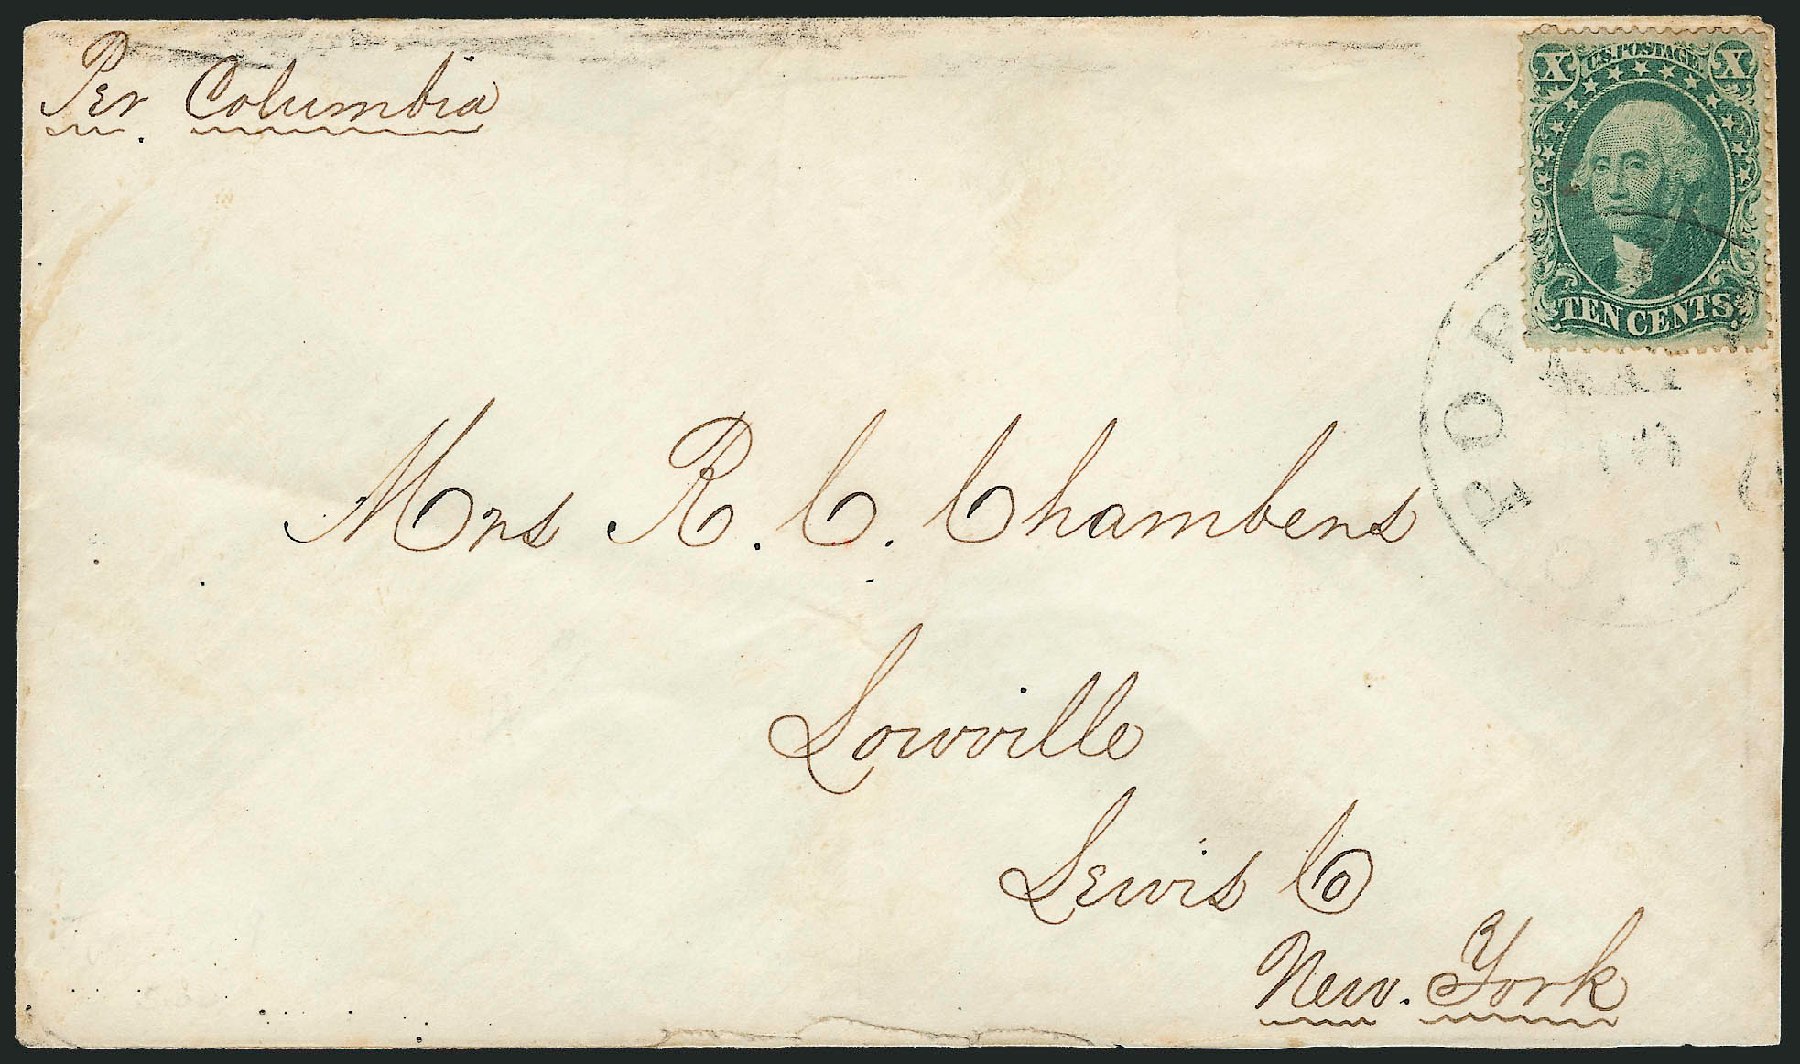 Per. Columbia
X U.S. POSTAGE X
TEN CENTS
PORT
O.T.
Mrs R. C. Chambers
Lowville
Lewis Co
New. York